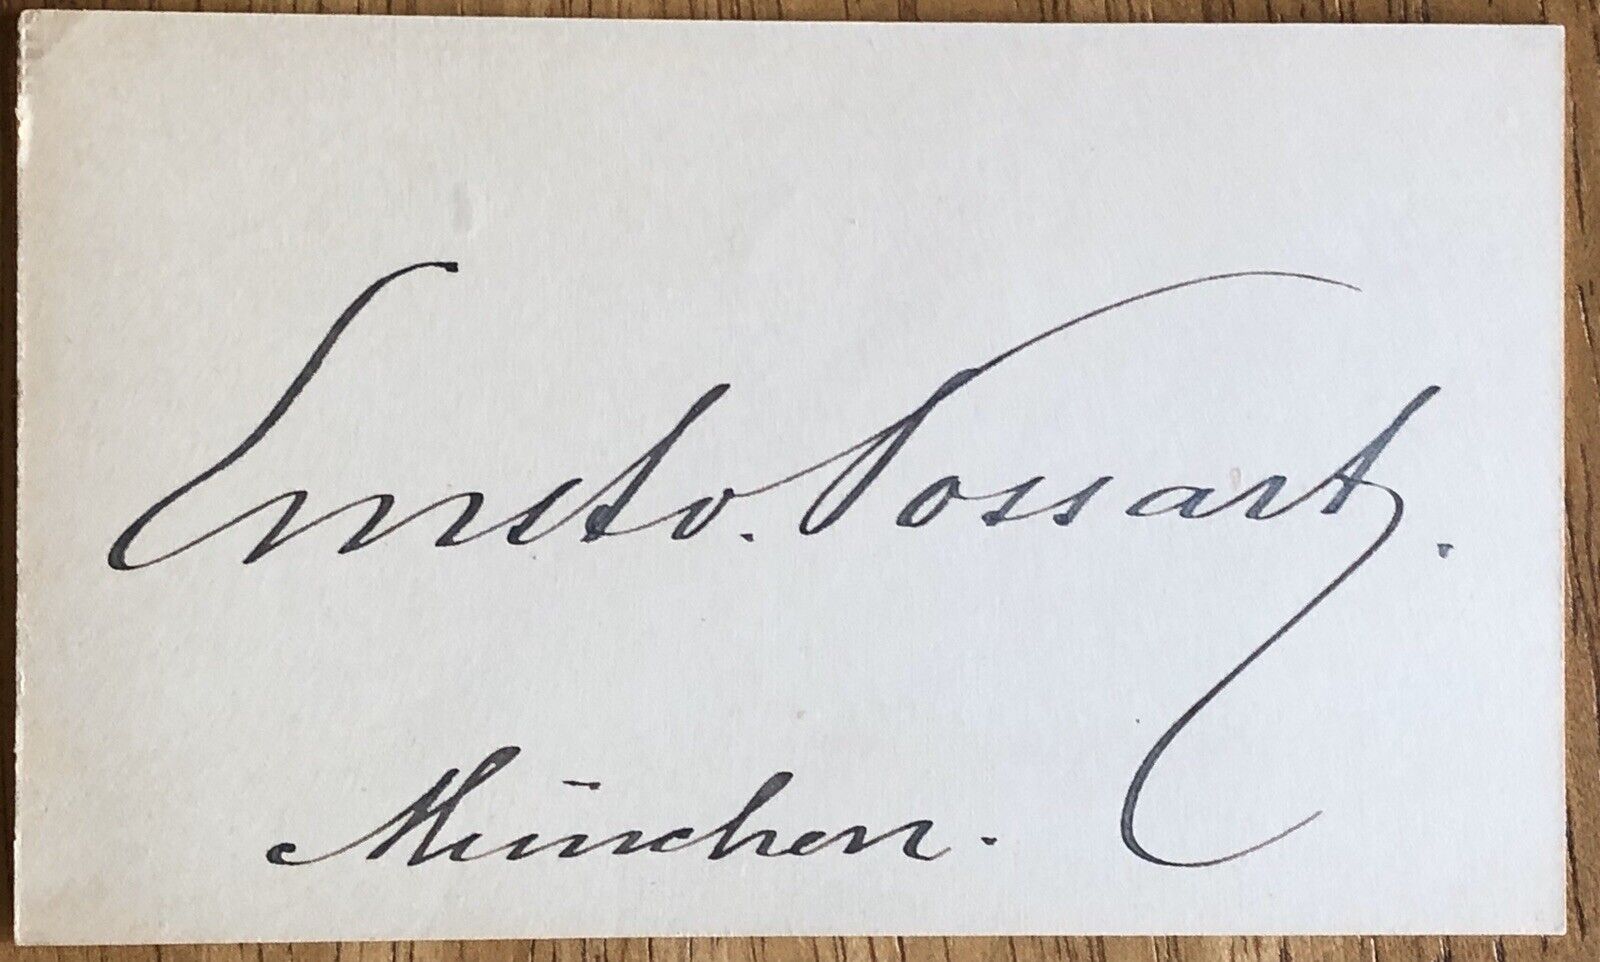 Ernst v. Possart.
München.